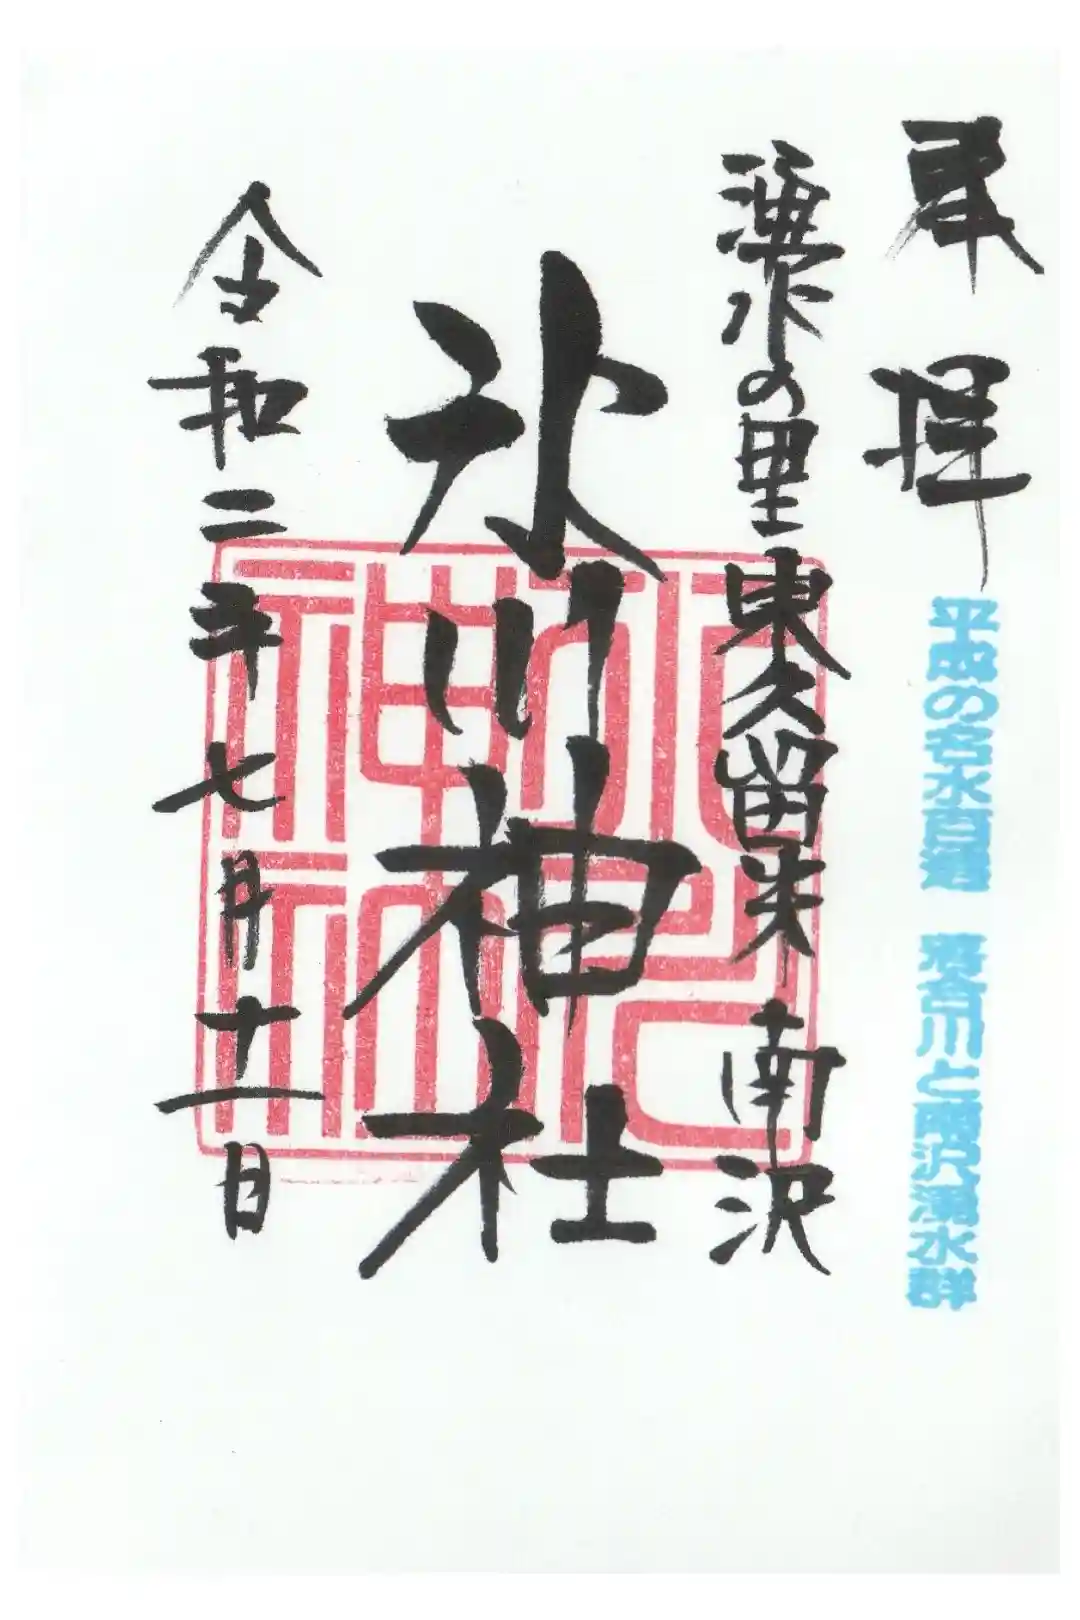 奉拝
平成の名水百選 落合川と南沢湧水群
湧水の里東久留米南沢
氷川神社
令和二年七月十一日
氷川神社